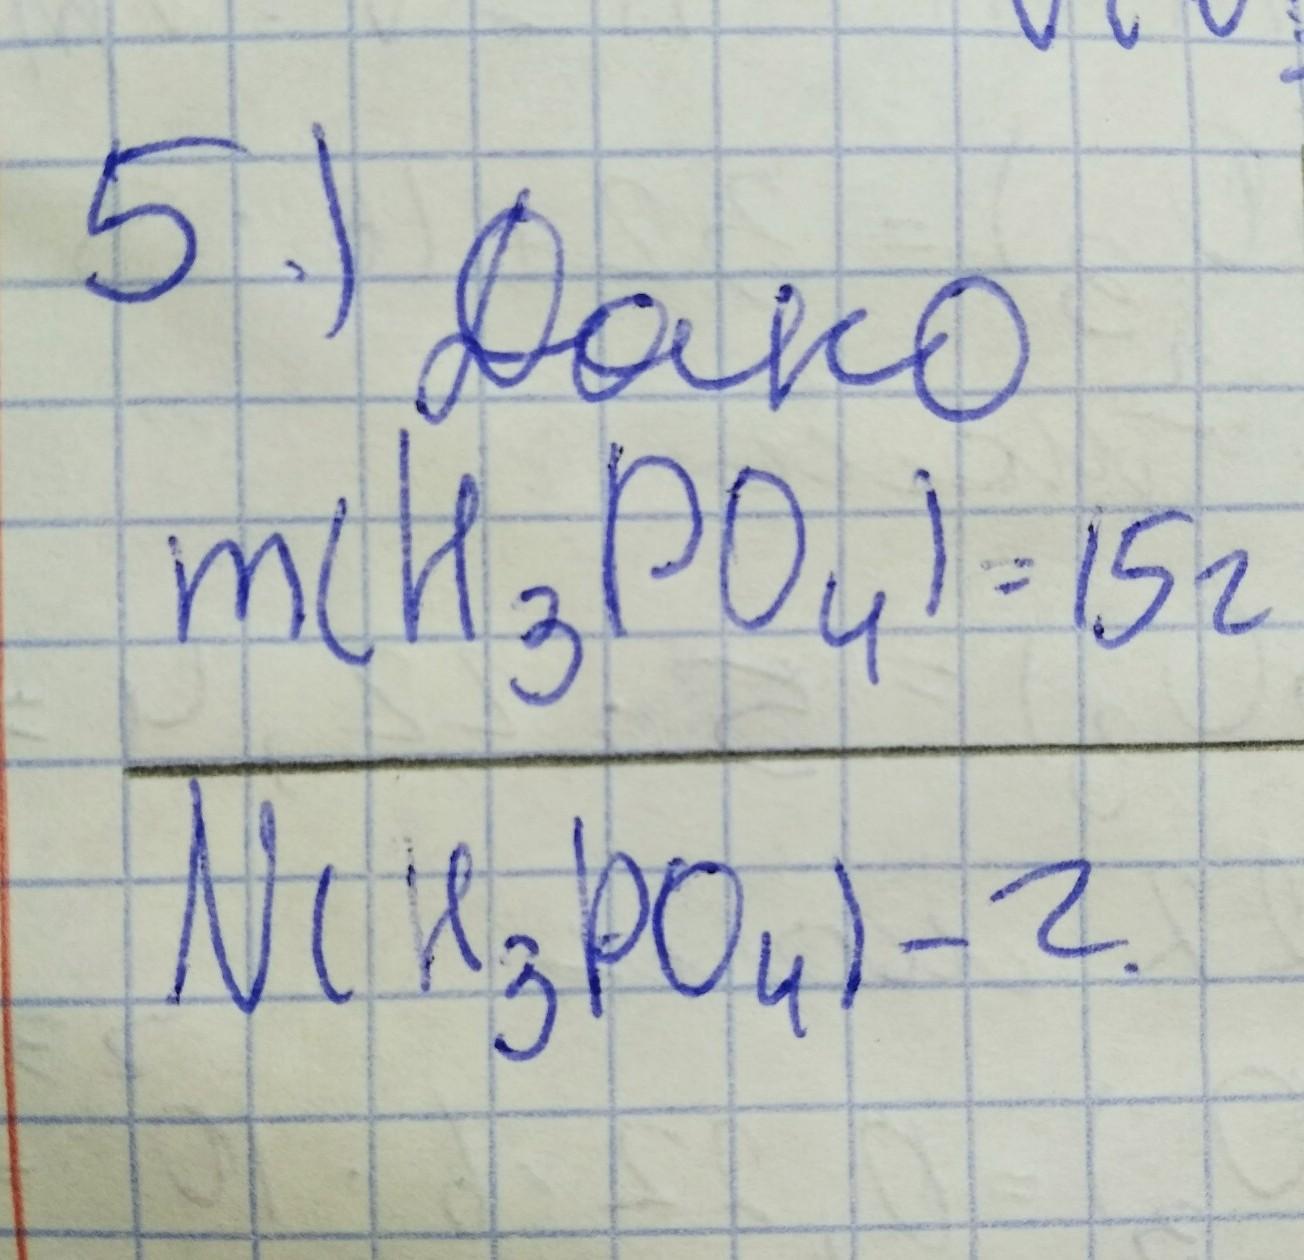 5.) Дано
m(H₃PO₄) = 15г
N(H₃PO₄) - ?